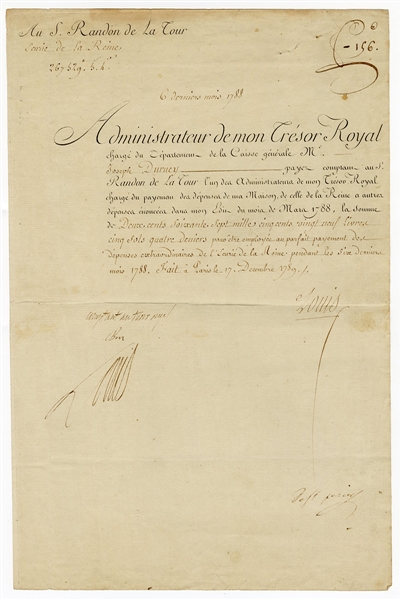 Au S. Randon de La Tour
Ecurie de la Reine
267529.tt 5.s 4.d
6
156.
6 derniers mois 1788
Administrateur de mon Trésor Royal
chargé du Département de la Caisse générale M.e
Joseph Duruey payez comptant au S.r
Randon de La Tour l'un des Administrateurs de mon Trésor Royal
chargé du payement des depenses de ma Maison, de celle de la Reine et autres
depenses enoncées dans mon Edit du mois de Mars 1788, la somme
de Deux cents soixante sept mille cinq cents vingt neuf livres
cinq sols quatre deniers pour être employée au parfait payement des
dépenses extraordinaires de l'Ecurie de la Reine pendant les six derniers
mois 1788. Fait à Paris le 17. Decembre 1789./.
Louis
comptant au tresor royal
Bon
Louis